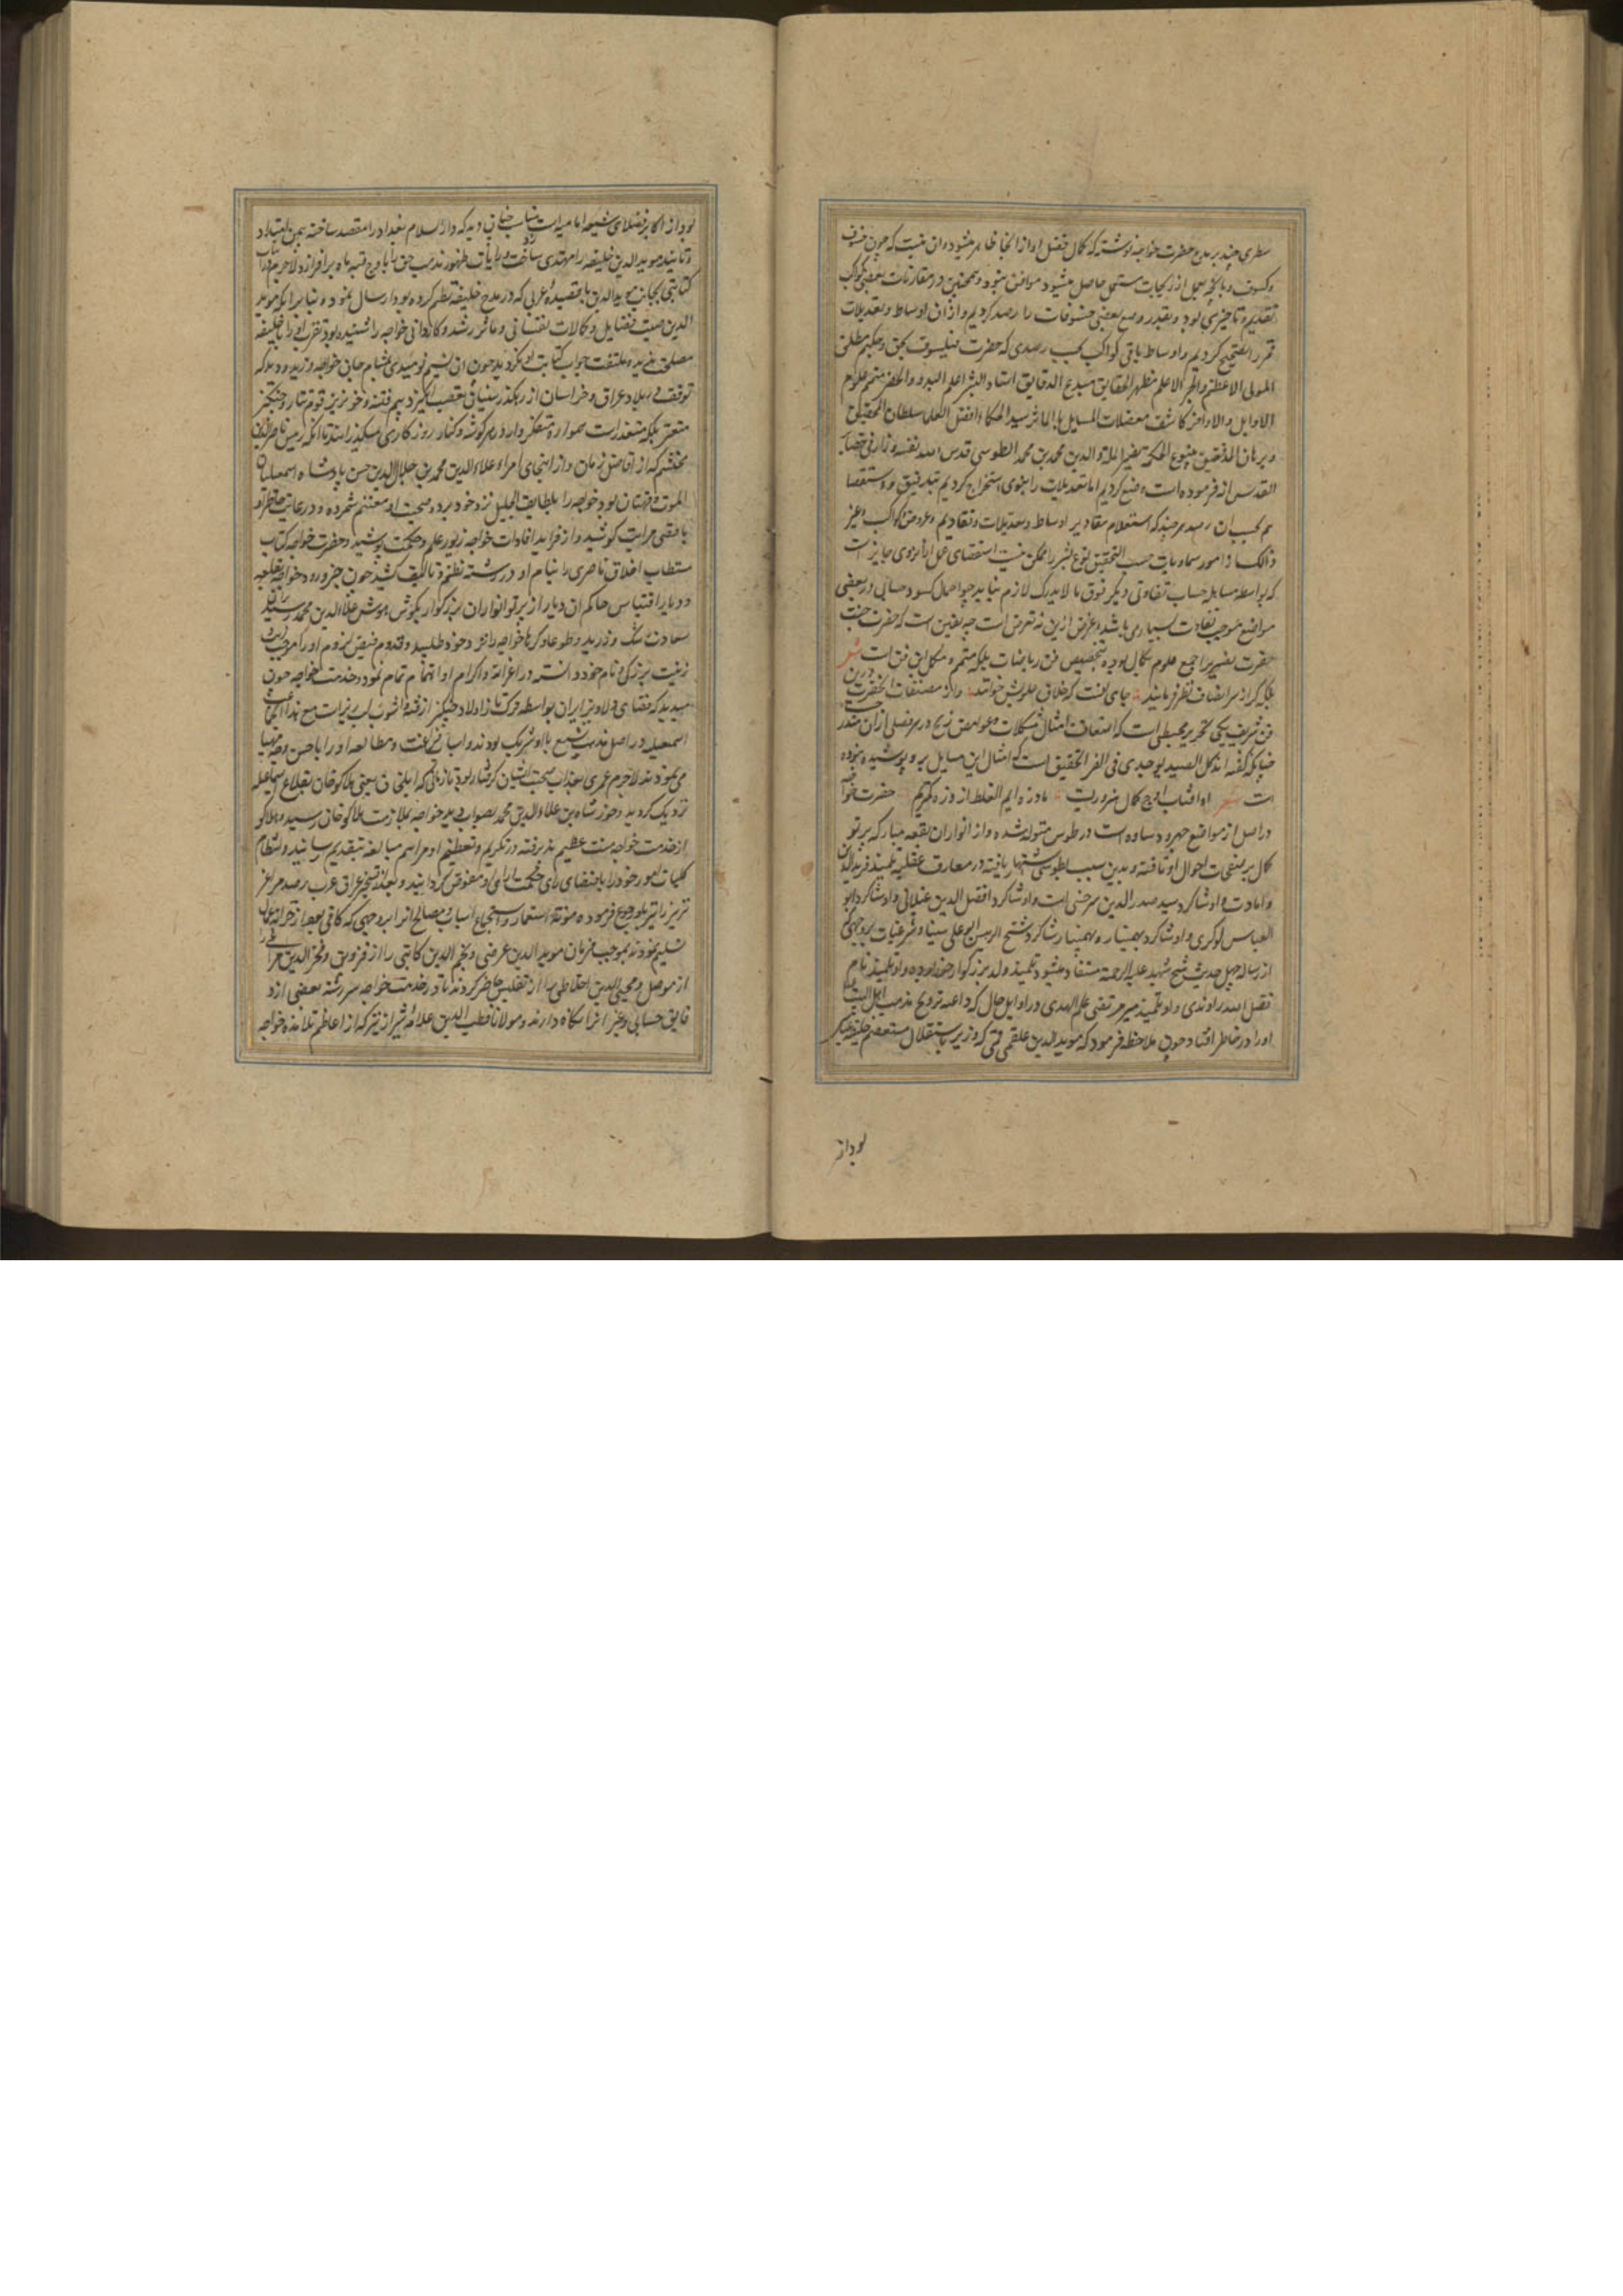 سطری چند بر مدح حضرت خواجه نوشته که کمال فضل او از آنجا ظاهر میشود و ان اینست که چون خسوف
و کسوف و بالجمله عمل از زیجات مستعمل حاصل میشود موافق نبود و همچنین در مقارنات بعضی کواکب
تقدیم و تاخیری بود و بقدر وسع بعضی خسوفات را رصد کردیم و از ان اوساط و تعدیلات
قمر را تصحیح کردیم و اوساط باقی کواکب بحسب رصدی که حضرت فیلسوف بحق و حکیم مطلق
المولی الاعظم والحبر الاعلم مظهر الحقایق مبدع الدقایق استاد البشر اعلم البدو والحضر متمم علوم
الاوایل والاواخر کاشف معضلات المسایل بالماثر سید الحکماء افضل العلما سلطان المحققین
و برهان المدققین ینبوع الحکمة نصیر الملة والدین محمد بن محمد الطوسی قدس الله نفسه و زاد فی حضایر
القدس انسه فرموده است وضع کردیم اما تعدیلات را بنوی استخراج کردیم بتدقیق و استقصا
هم بحسب ان رصد هر چند که استعلام مقادیر اوساط و تعدیلات و تقادیم و عروض کواکب و غیر
ذالک از امور سماویات حسب التحقیق نوع بشر را ممکن نیست استقصای عمل از آنروی جایز است
که بواسطه مساهله حساب تفاوتی دیگر فوق ما لا یدرک لازم نیاید چو اهمال کسور حسابی در بعضی
مواضع موجب تفاوت بسیار می باشد و غرض ازین نه تعرض است چه یقین است که حضرت جنت
حضرت نصیر در جمیع علوم بکمال بوده بتخصیص فن ریاضیات بلکه متمم و مکمل این فن است شعر
بلکه گر از سر انصاف نظر فرمایند جای انست که خلاق علومش خوانند و از مصنفات انحضرت درین
فن شریف یکی تحریر مجسطی است که استعاف امثال مشکلات و غوامض زیج در هر فصلی از ان مندرج است
چنانکه گفته اند کل الصید یوجد فی جوف الفرا لتحقیق است که امثال این مسایل برو پوشیده نبوده
است شعر او افتاب اوج کمال ضرورتیست ما ذره ایم الغلط از ذره کمتریم حضرت خواجه
در اصل از مواضع جهرود ساوه است در طوس متولد شده و از انوار ان بقعه مبارکه پرتو
کمال بر صفحات احوال او تافته و بدین سبب بطوسی اشتهار یافته در معارف عقلیه تلمیذ فرید الدین
داماد است و او شاگرد سید صدر الدین سرخسی است و او شاگرد افضل الدین غیلانی و او شاگرد ابو
العباس لوکری و او شاگرد بهمنیار و بهمنیار شاگرد شیخ الرییس ابو علی سینا و در شرعیات بروجهی که
از رساله چهل حدیث شیخ شهید علیه الرحمة مستفاد میشود تلمیذ والد بزرگوار خود بوده و او تلمیذ امام
فضل الله راوندی و او تلمیذ میر مرتضی علم الهدی و در اوایل حال که داعیه ترویج مذهب اهل البیت
او را در خاطر افتاد چون ملاحظه فرمود که موید الدین علقمی قمی که وزیر باستقلال مستعصم خلیفه
بود از
بود از اکابر فضلای شیعه امامیه است مناسب چنان دید که دار السلام بغداد را مقصد ساخته بیمن امداد
و تایید موید الدین خلیفه را مهتدی ساخت و رایات ظهور مذهب حق را باوج قبه ماه برافرازد لاجرم در ان باب
کتابتی بجانب موید الدین با قصیده عربی که در مدح خلیفه نظم کرده بود ارسال نمود و بنابر آنکه موید
الدین صیت فضایل و کمالات نفسانی و ماثر رشد و کاردانی خواجه را شنیده بود تقرب او را بخلیفه
مصلحت ندید و ملتفت جواب کتابت او نگردید چون ان نسیم نومیدی بمشام جان خواجه وزید و دید که
توقف در بلاد عراق و خراسان از رهگذر سنیان تعصب انگیز و بیم فتنه و خونریز قوم تتار و چنگیز
متعسر بلکه متعذر است همواره متفکروار در هر گوشه و کنار روزگاری میگذرانید تا آنکه رییس ناصر الدین
محتشم که از افاضل زمان و از اسخیای امراء علاء الدین محمد بن جلال الدین حسن پادشاه اسمعیلیان
الموت و قهستان بود خواجه را بلطایف الحیل نزد خود برد و صحبت او مغتنم شمرده و در رعایت خاطر او
باقصی مراتب کوشید و از فراید افادات خواجه زیور علم و حکمت پوشید و حضرت خواجه کتاب
مستطاب اخلاق ناصری را بنام او در رشته نظم و تالیف کشید چون خبر ورود خواجه بقلعه
و دیار اقتباس حاکم ان دیار از پرتو انوار ان بزرگوار بگوش هوش علاء الدین محمد رسید از ان
سعادت رشک ورزید و طوعا و کرها خواجه را نزد خود طلبید و قدوم فیض لزوم او را موجب زیب و
زینت بزرگی و نام خود دانسته در اعزاز و اکرام او اهتمام تمام نمود و خدمت خواجه چون
میدید که فضای ولایت ایران بواسطه ترکتاز اولاد چنگیز از فتنه و اشوب لبریز است مع هذا
اسمعیلیه در اصل مذهب تشیع با او شریک بودند و اسباب فراغت و مطالعه او را باحسن وجه مهیا
می نمودند لاجرم عمری بعذاب صحبت ایشان گرفتار بود تا زمانی که ایلخان یعنی هلاکو خان بقلاع اسماعیلیه
نزدیک گردید و خورشاه بن علاء الدین محمد بصوابدید خواجه بملازمت هلاکو خان رسید و هلاکو
از خدمت خواجه منت عظیم پذیرفته در تکریم و تعظیم او مراسم مبالغه بتقدیم رسانید و انتظام
کلیات امور خود را باقتضای رای حکمت ارای او مفوض گردانید و بعد از تسخیر عراق عرب رصد مراغه
تبریز را نیز باو رجوع فرموده مونة استعمار و استجماع اسباب و مصالح انرا بر وجهی که کافی بود از خزانه عامره
تسلیم نمودند بموجب فرمان موید الدین عرضی و نجم الدین کاتبی را از قزوین و فخر الدین مراغی را
از موصل و محیی الدین اخلاطی را از تفلیس حاضر کردند تا در خدمت خواجه سررشته بعضی از د
قایق حسابی و غیر انرا نگاه دارند و مولانا قطب الدین علامه شیرازی نیز که از اعاظم تلامذه خواجه